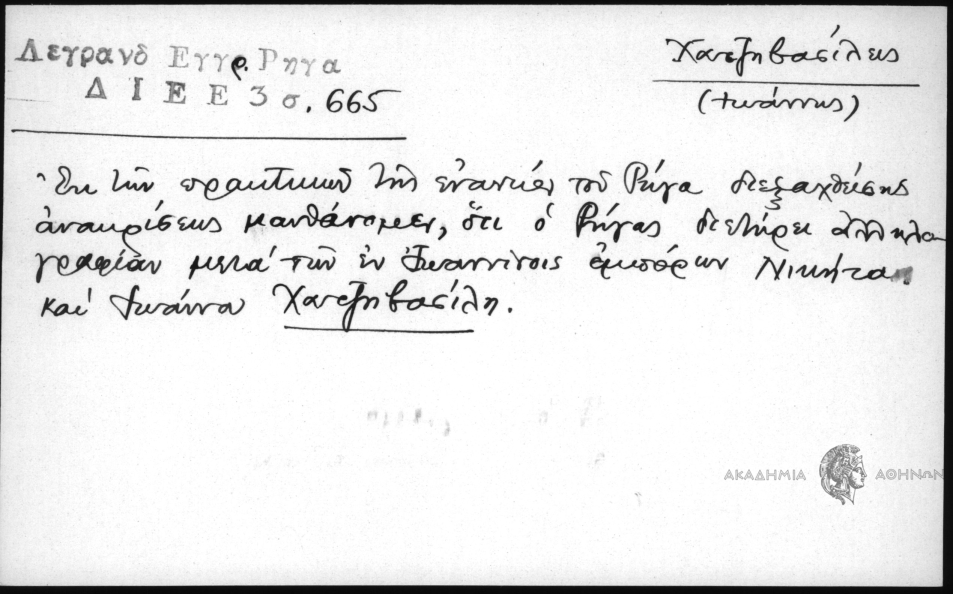 Λεγρανδ Εγγρ. Ρηγα
Δ Ι Ε Ε 3 σ. 665
Χατζηβασίλης
(Ἰωάννης)
Ἐκ τῶν πρακτικῶν τῆς ἐναντίον τοῦ Ρήγα διεξαχθείσης
ἀνακρίσεως μανθάνομεν, ὅτι ὁ Ρήγας διετήρει ἀλληλο
γραφίαν μετὰ τῶν ἐν Ἰωαννίνοις ἐμπόρων Νικήτα
καὶ Ἰωάννα Χατζηβασίλη.
ΑΚΑΔΗΜΙΑ ΑΘΗΝΩΝ